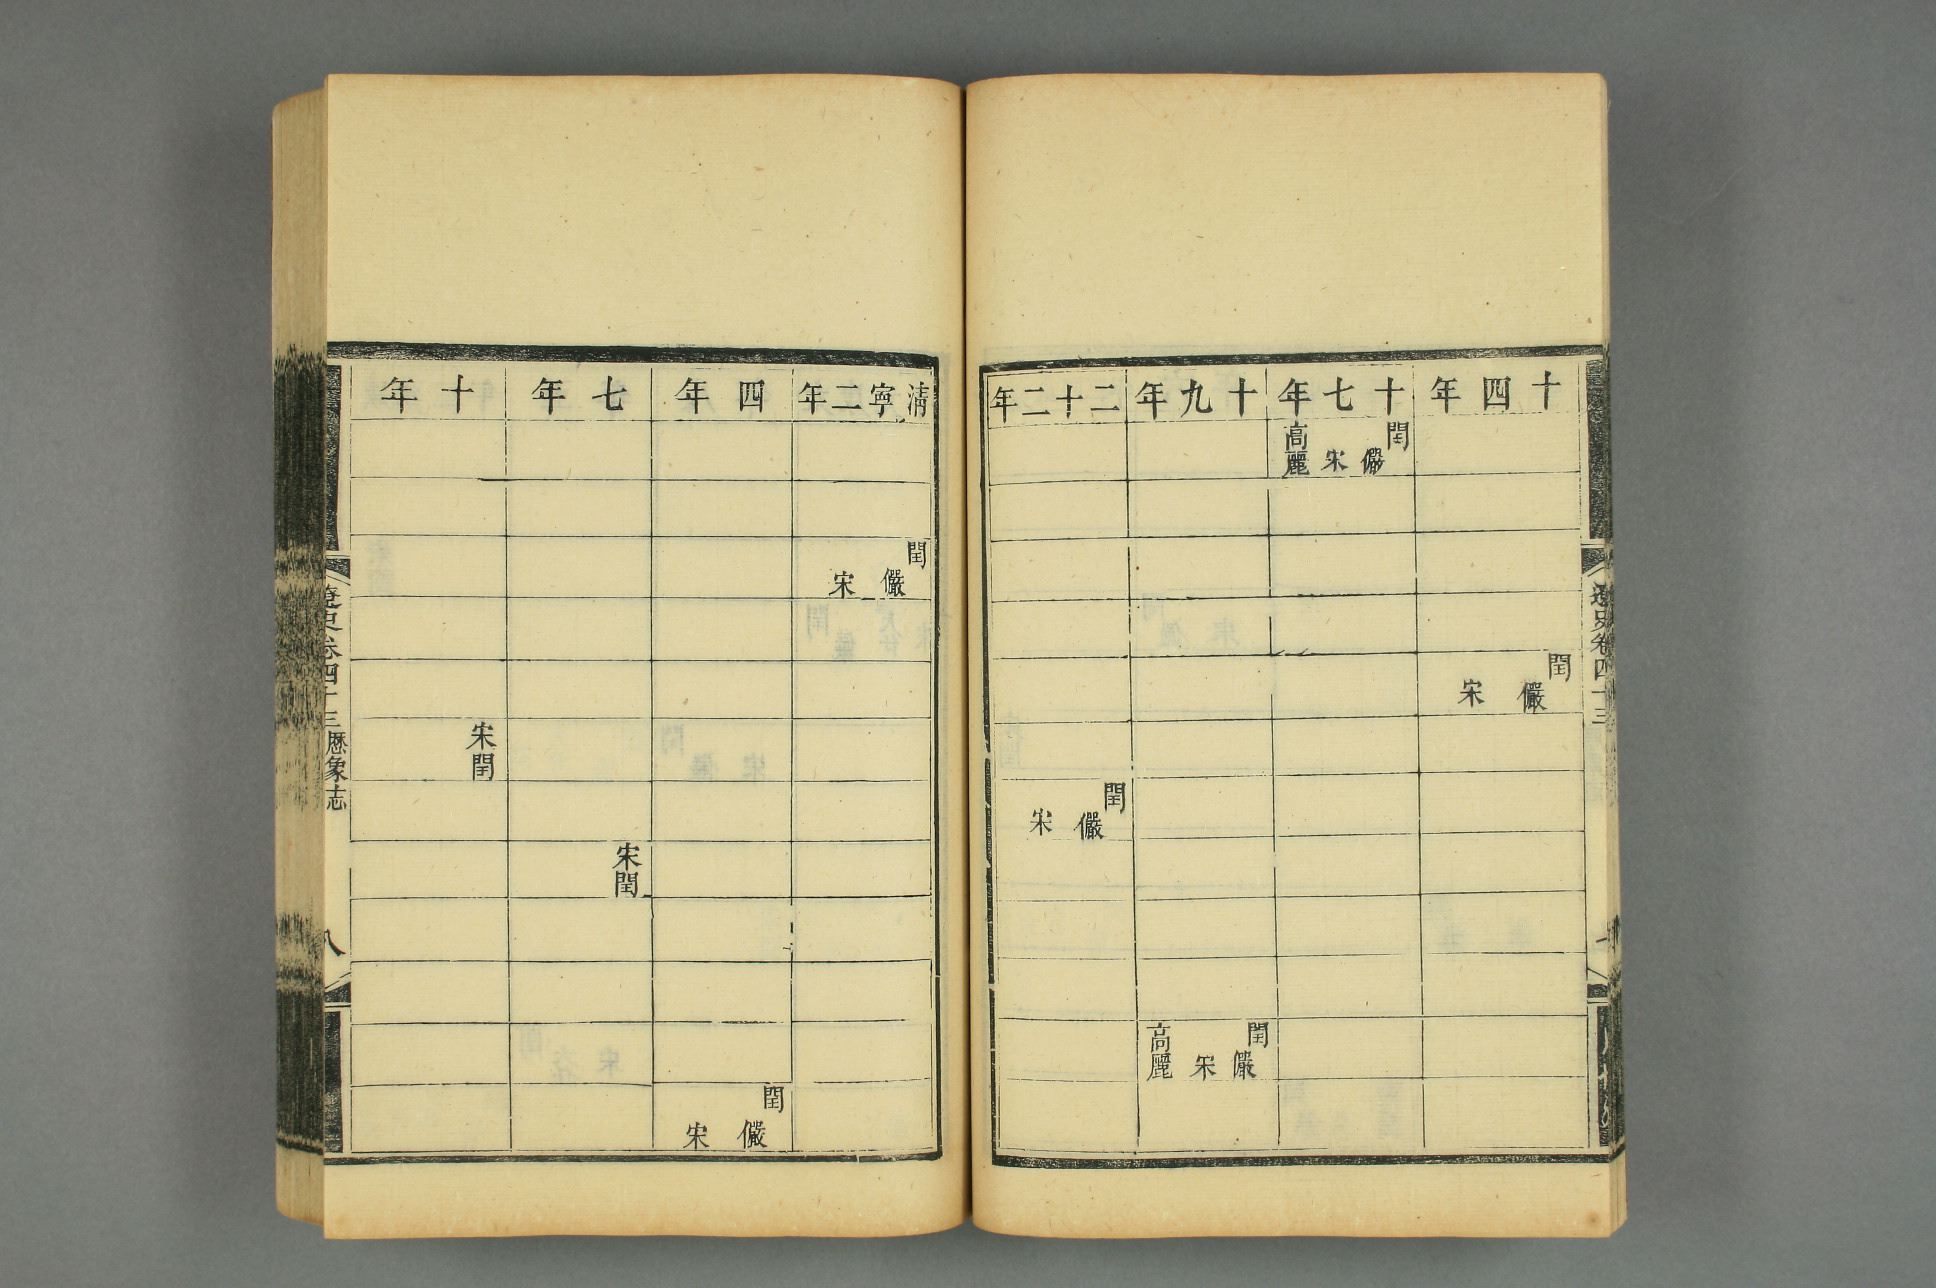 十四年
閏
儼
宋
十七年
閏
儼
宋
高麗
十九年
閏
儼
宋
高麗
二十二年
閏
儼
宋
清寧二年
閏
儼
宋
四年
閏
儼
宋
七年
宋閏
十年
宋閏
遼史卷四十三
遼史卷四十三 歷象志
八